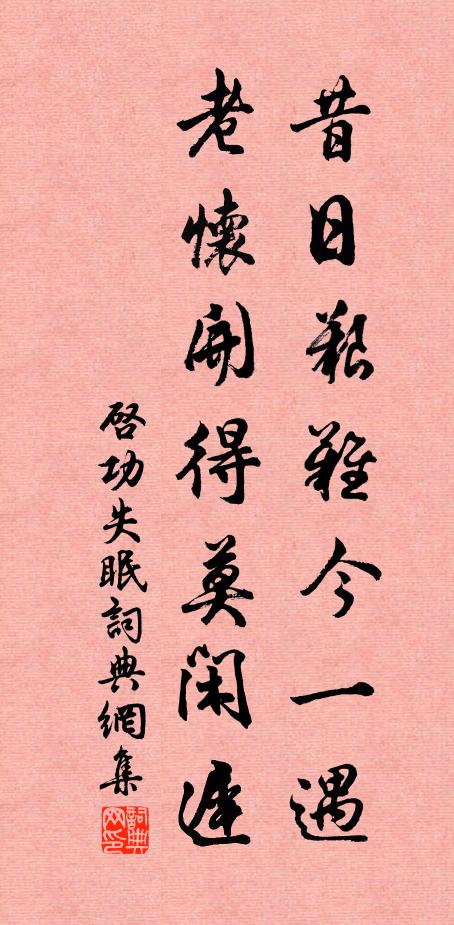 昔日艱難今一遇
老懷開得莫閑遲
啓功失眠詞典網集
詞典网印